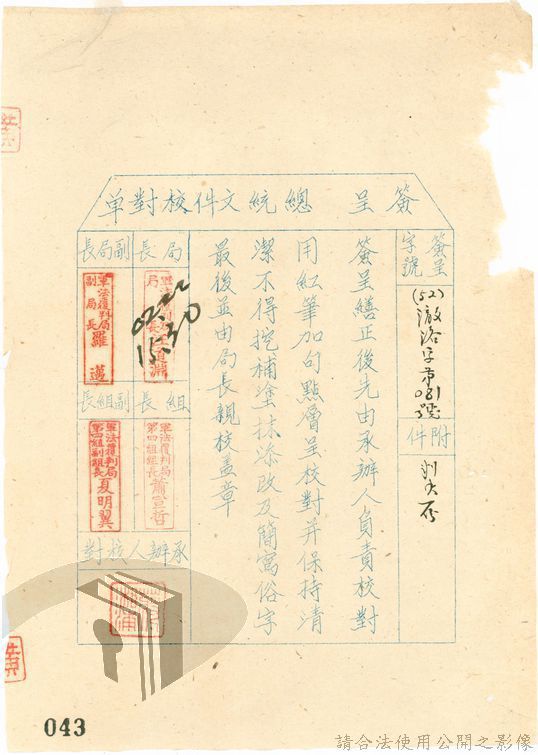 簽呈 總統文件校對单
簽呈字號
(52)澈洛字第081號
附件
簽呈繕正後先由承辦人負責校對
用紅筆加句點層呈校對并保持清
潔不得挖補塗抹添改及簡寫俗字
最後並由局長親校蓋章
局長
副局長
軍法覆判局副局長 羅邁
15:30
組長
副組長
軍法覆判局第四組組長 蕭
軍法覆判局第四組副組長 夏明翼
承辦人校對
043
請合法使用公開之影像